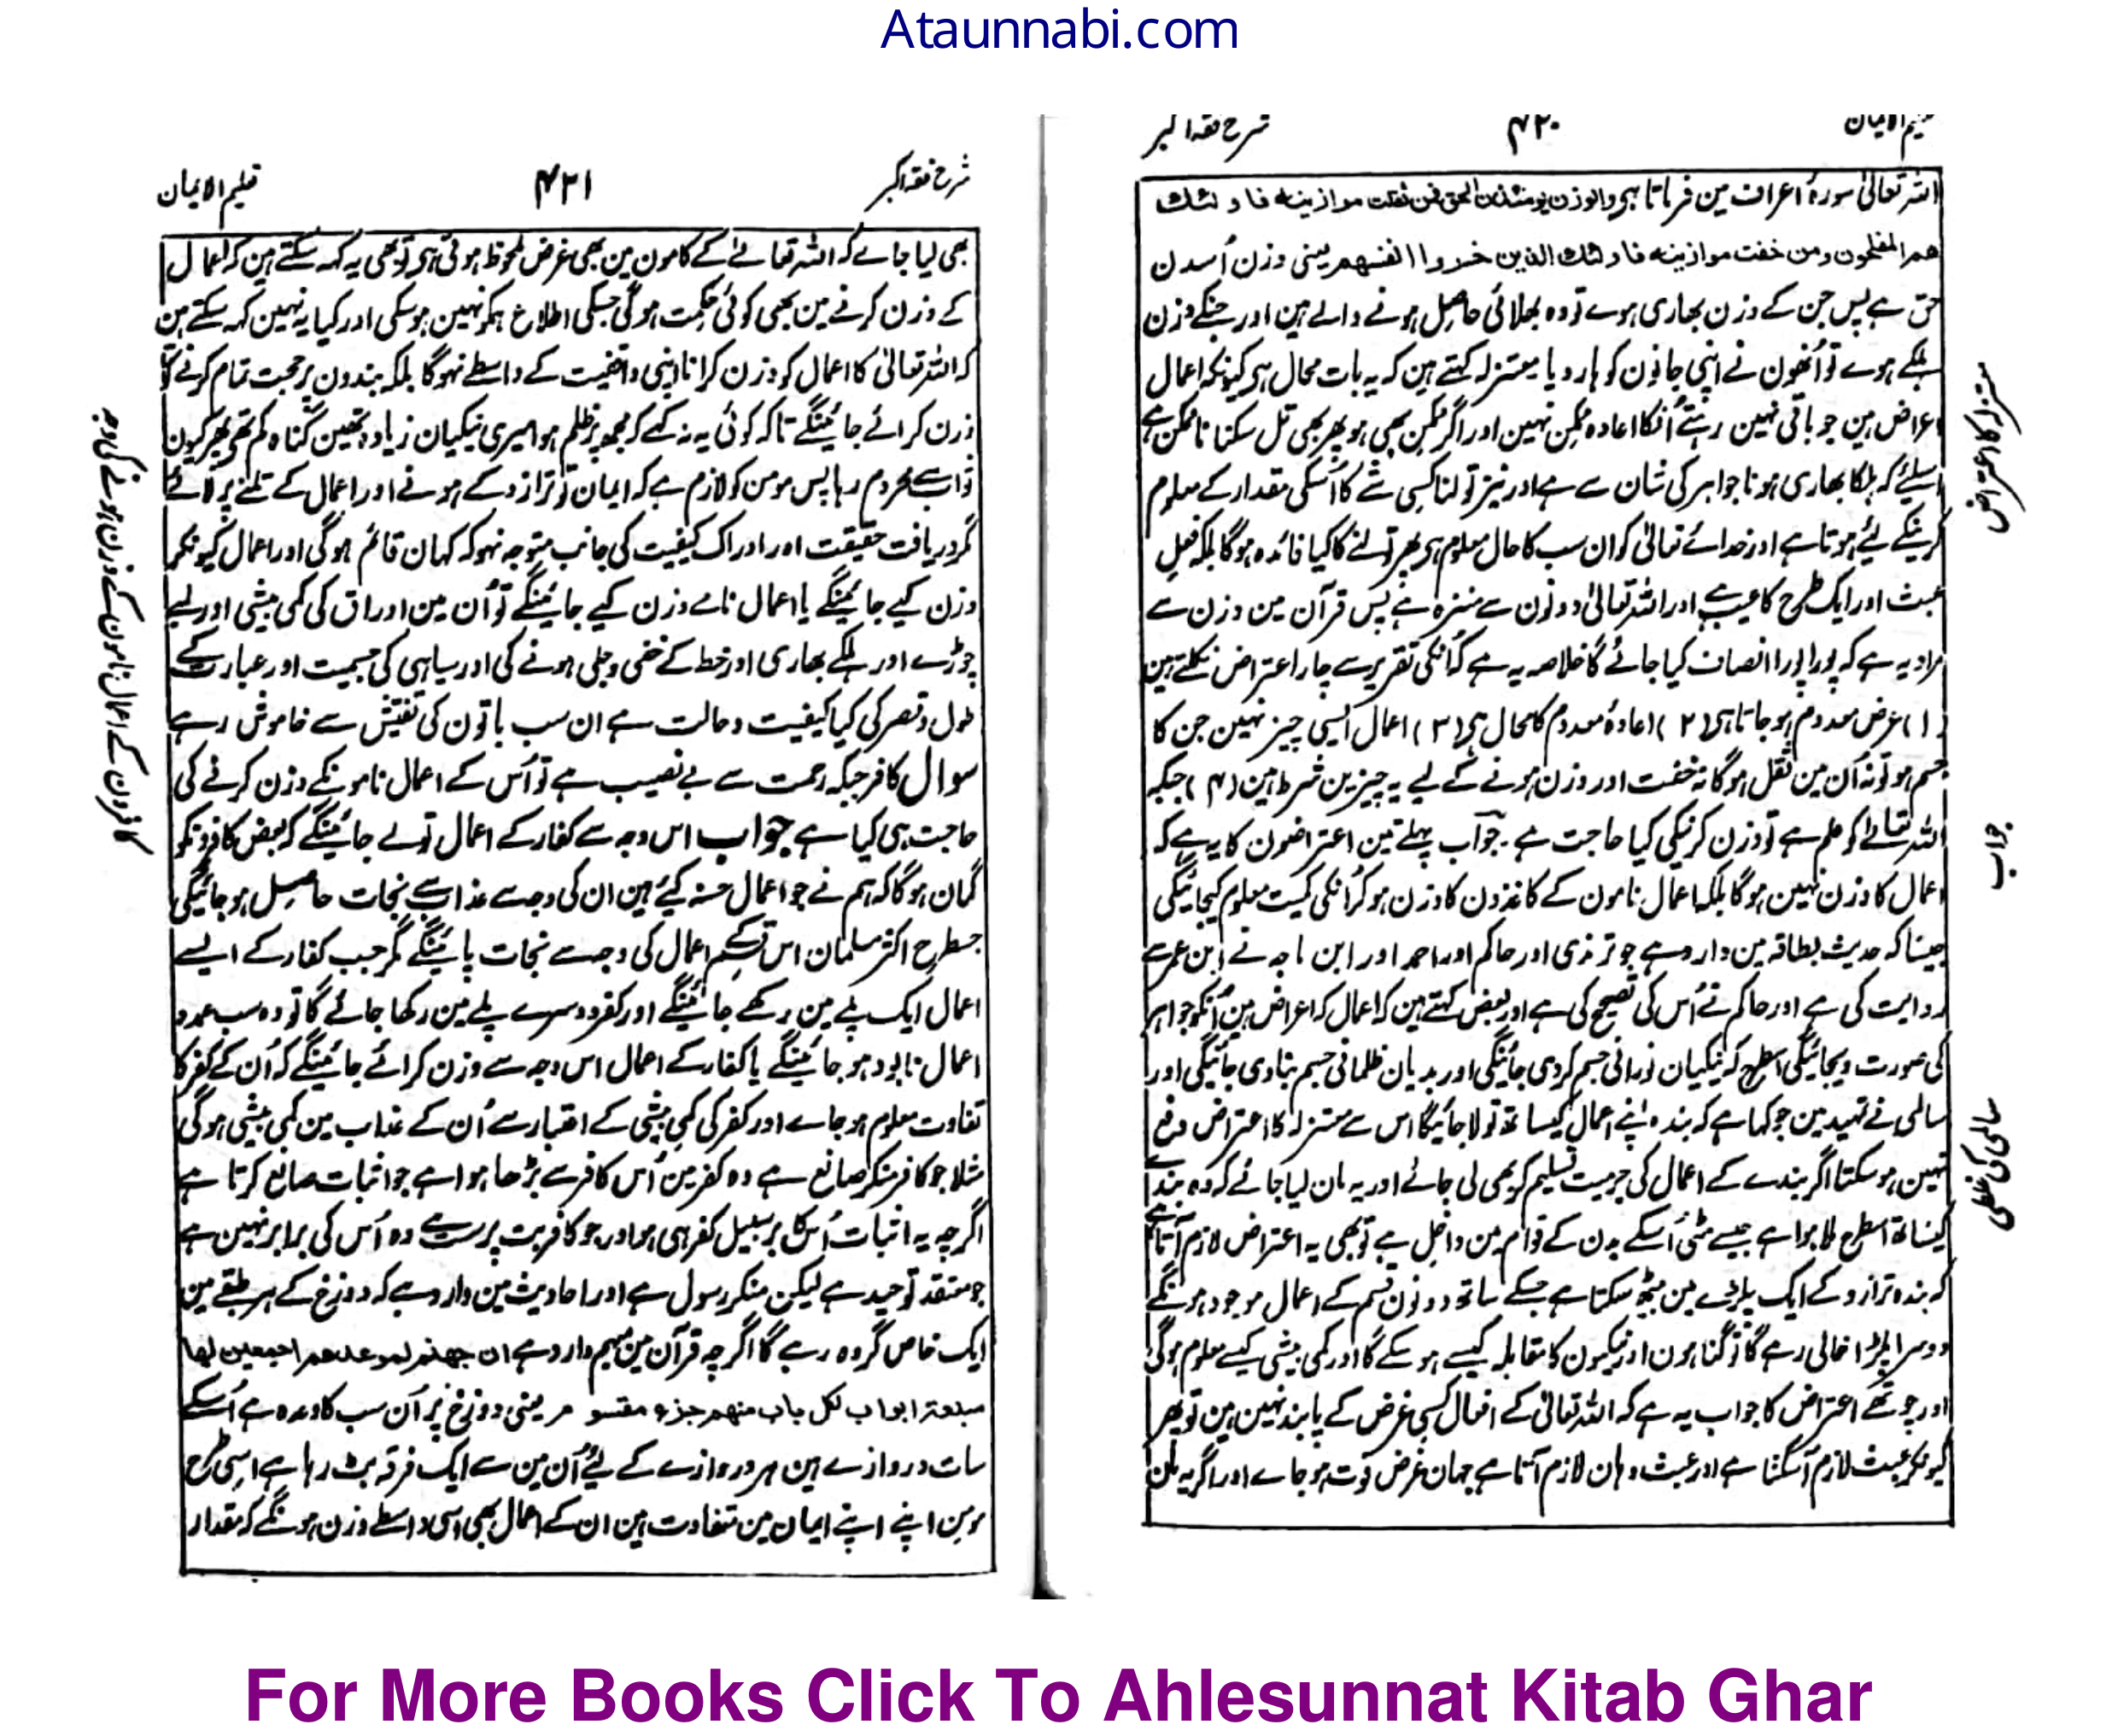 Ataunnabi.com
شرح فقہ اکبر
۴۲۰
تعلیم الایمان
اللہ تعالیٰ سورۂ اعراف مین فرماتا ہی والوزن یومئذن الحق فمن ثقلت موازینہ فاولئک
ھم المفلحون ومن خفت موازینہ فاولئک الذین خسروا انفسھم یعنی وزن اُسدن
حق ہے پس جن کے وزن بھاری ہوے تو وہ بھلائی حاصل ہونے والے ہین اور جنکے وزن
ہلکے ہوے تو اُنھون نے اپنی جانون کو ہار دیا معتزلہ کہتے ہین کہ یہ بات محال ہی کیونکہ اعمال
اعراض ہین جو باقی نہین رہتے اُنکا اعادہ ممکن نہین اور اگر ممکن بھی ہو پھر بھی تل سکنا ناممکن ہے
اسلیے کہ ہلکا بھاری ہونا جواہر کی شان سے ہے اور نیز تولنا کسی شے کا اُسکی مقدار کے معلوم
کرنیکے لیے ہوتا ہے اور خدائے تعالیٰ کو ان سب کا حال معلوم ہی پھر تولنے کا کیا فائدہ ہوگا بلکہ فعل
عبث اور ایک طرح کا عیب ہے اور اللہ تعالیٰ دونون سے منزہ ہے پس قرآن مین وزن سے
مراد یہ ہے کہ پورا پورا انصاف کیا جائے گا خلاصہ یہ ہے کہ اُنکی تقریر سے چار اعتراض نکلتے ہین
(۱) عرض معدوم ہو جاتا ہی (۲) اعادۂ معدوم کا محال ہی (۳) اعمال ایسی چیز نہین جن کا
جسم ہو تو نہ اُن مین ثقل ہوگا نہ خفت اور وزن ہونے کے لیے یہ چیزین شرط ہین (۴) جبکہ
اللہ تعالےٰ کو علم ہے تو وزن کرنیکی کیا حاجت ہے۔ جواب پہلے تین اعتراضون کا یہ ہے کہ
اعمال کا وزن نہین ہوگا بلکہ اعمال نامون کے کاغذون کا وزن ہو کر اُنکی کمیت معلوم کیجائیگی
جیسا کہ حدیث بطاقہ مین وارد ہے جو ترمذی اور حاکم اور احمد اور ابن ماجہ نے ابن عمر سے
روایت کی ہے اور حاکم نے اُس کی تصحیح کی ہے اور بعض کہتے ہین کہ اعمال کہ اعراض ہین اُنکو جواہر
کی صورت دیجائیگی اسطرح کہ نیکیان نورانی جسم کردی جائینگی اور بدیان ظلمانی جسم بنادی جائیگی اور
سالمی نے تمہید مین جو کہا ہے کہ بندہ اپنے اعمال کیساتھ تولا جائیگا اس سے معتزلہ کا اعتراض دفع
نہین ہو سکتا اگر بندے کے اعمال کی جرمیت تسلیم کر بھی لی جائے اور یہ مان لیا جائے کہ وہ بندے
کیساتھ اسطرح ملا ہوا ہے جیسے مٹی اُسکے بدن کے قوام مین داخل ہے تو بھی یہ اعتراض لازم آتا ہے
کہ بندہ ترازو کے ایک پلڑے مین بیٹھ سکتا ہے جسکے ساتھ دونون قسم کے اعمال موجود ہونگے
دوسرا پلڑا خالی رہے گا تو گناہون اور نیکیون کا مقابلہ کیسے ہو سکے گا اور کمی بیشی کیسے معلوم ہوگی
اور چوتھے اعتراض کا جواب یہ ہے کہ اللہ تعالیٰ کے افعال کسی غرض کے پابند نہین ہین تو پھر
کیونکر عبث لازم آسکتا ہے اور عبث وہان لازم آتا ہے جہان غرض فوت ہو جاے اور اگر یہ مان
معتزلہ کا اعتراض
جواب
سالمی کی غلطی
شرح فقہ اکبر
۴۲۱
تعلیم الایمان
بھی لیا جاے کہ اللہ تعالےٰ کے کامون مین بھی غرض ملحوظ ہوتی ہی تو بھی یہ کہہ سکتے ہین کہ اعمال
کے وزن کرنے مین بھی کوئی حکمت ہوگی جسکی اطلاع ہمکو نہین ہو سکی اور کیا یہ نہین کہہ سکتے ہین
کہ اللہ تعالیٰ کا اعمال کو وزن کرانا اپنی واقفیت کے واسطے نہوگا بلکہ بندون پر حجت تمام کرنے کو
وزن کرائے جائینگے تاکہ کوئی یہ نہ کہے کہ مجھ پر ظلم ہوا میری نیکیان زیادہ تھین گناہ کم تھے پھر کیون
ثواب سے محروم رہا پس مومن کو لازم ہے کہ ایمان تو ترازو کے ہونے اور اعمال کے تلنے پر لائے
مگر دریافت حقیقت اور ادراک کیفیت کی جانب متوجہ نہو کہ کہان قائم ہوگی اور اعمال کیونکر
وزن کیے جائینگے یا اعمال نامے وزن کیے جائینگے تو اُن مین اوراق کی کمی بیشی اور لمبے
چوڑے اور ہلکے بھاری اور خط کے خفی و جلی ہونے کی اور سیاہی کی جسمیت اور عبارت کے
طول و قصر کی کیا کیفیت و حالت ہے ان سب باتون کی تفتیش سے خاموش رہے
سوال کافر جبکہ رحمت سے بے نصیب ہے تو اُس کے اعمال نامونکے وزن کرنے کی
حاجت ہی کیا ہے جواب اس وجہ سے کفار کے اعمال تولے جائینگے کہ بعض کافرونکو
گمان ہوگا کہ ہم نے جو اعمال حسنہ کیے ہین ان کی وجہ سے عذاب سے نجات حاصل ہو جائیگی
جسطرح اکثر مسلمان اس قسم کے اعمال کی وجہ سے نجات پائینگے مگر جب کفار کے ایسے
اعمال ایک پلے مین رکھے جائینگے اور کفر دوسرے پلے مین رکھا جائے گا تو وہ سب عمدہ
اعمال نابود ہو جائینگے یا کفار کے اعمال اس وجہ سے وزن کرائے جائینگے کہ اُن کے کفر کا
تفاوت معلوم ہو جاے اور کفر کی کمی بیشی کے اعتبار سے اُن کے عذاب مین کمی بیشی ہوگی
مثلا جو کافر منکر صانع ہے وہ کفر مین اُس کافر سے بڑھا ہوا ہے جو اثبات صانع کرتا ہے
اگرچہ یہ اثبات اُسکا بر سبیل کفر ہی ہو اور جو کافر بت پرست ہے وہ اُس کی برابر نہین ہے
جو معتقد توحید ہے لیکن منکر رسول ہے اور احادیث مین وارد ہے کہ دوزخ کے ہر طبقے مین
ایک خاص گروہ رہے گا اگرچہ قرآن مین مبہم وارد ہے ان جھنم لموعدھم اجمعین لھا
سبعۃ ابواب لکل باب منھم جزء مقسوم یعنی دوزخ پر اُن سب کا وعدہ ہے اُسکے
سات دروازے ہین ہر دروازے کے لیے اُن مین سے ایک فرقہ بٹ رہا ہے اسی طرح
مومن اپنے اپنے ایمان مین متفاوت ہین ان کے اعمال بھی اسی واسطے وزن ہونگے کہ مقدار
کافرون کے اعمال نامون کے وزن ہونے کی وجہ
For More Books Click To Ahlesunnat Kitab Ghar